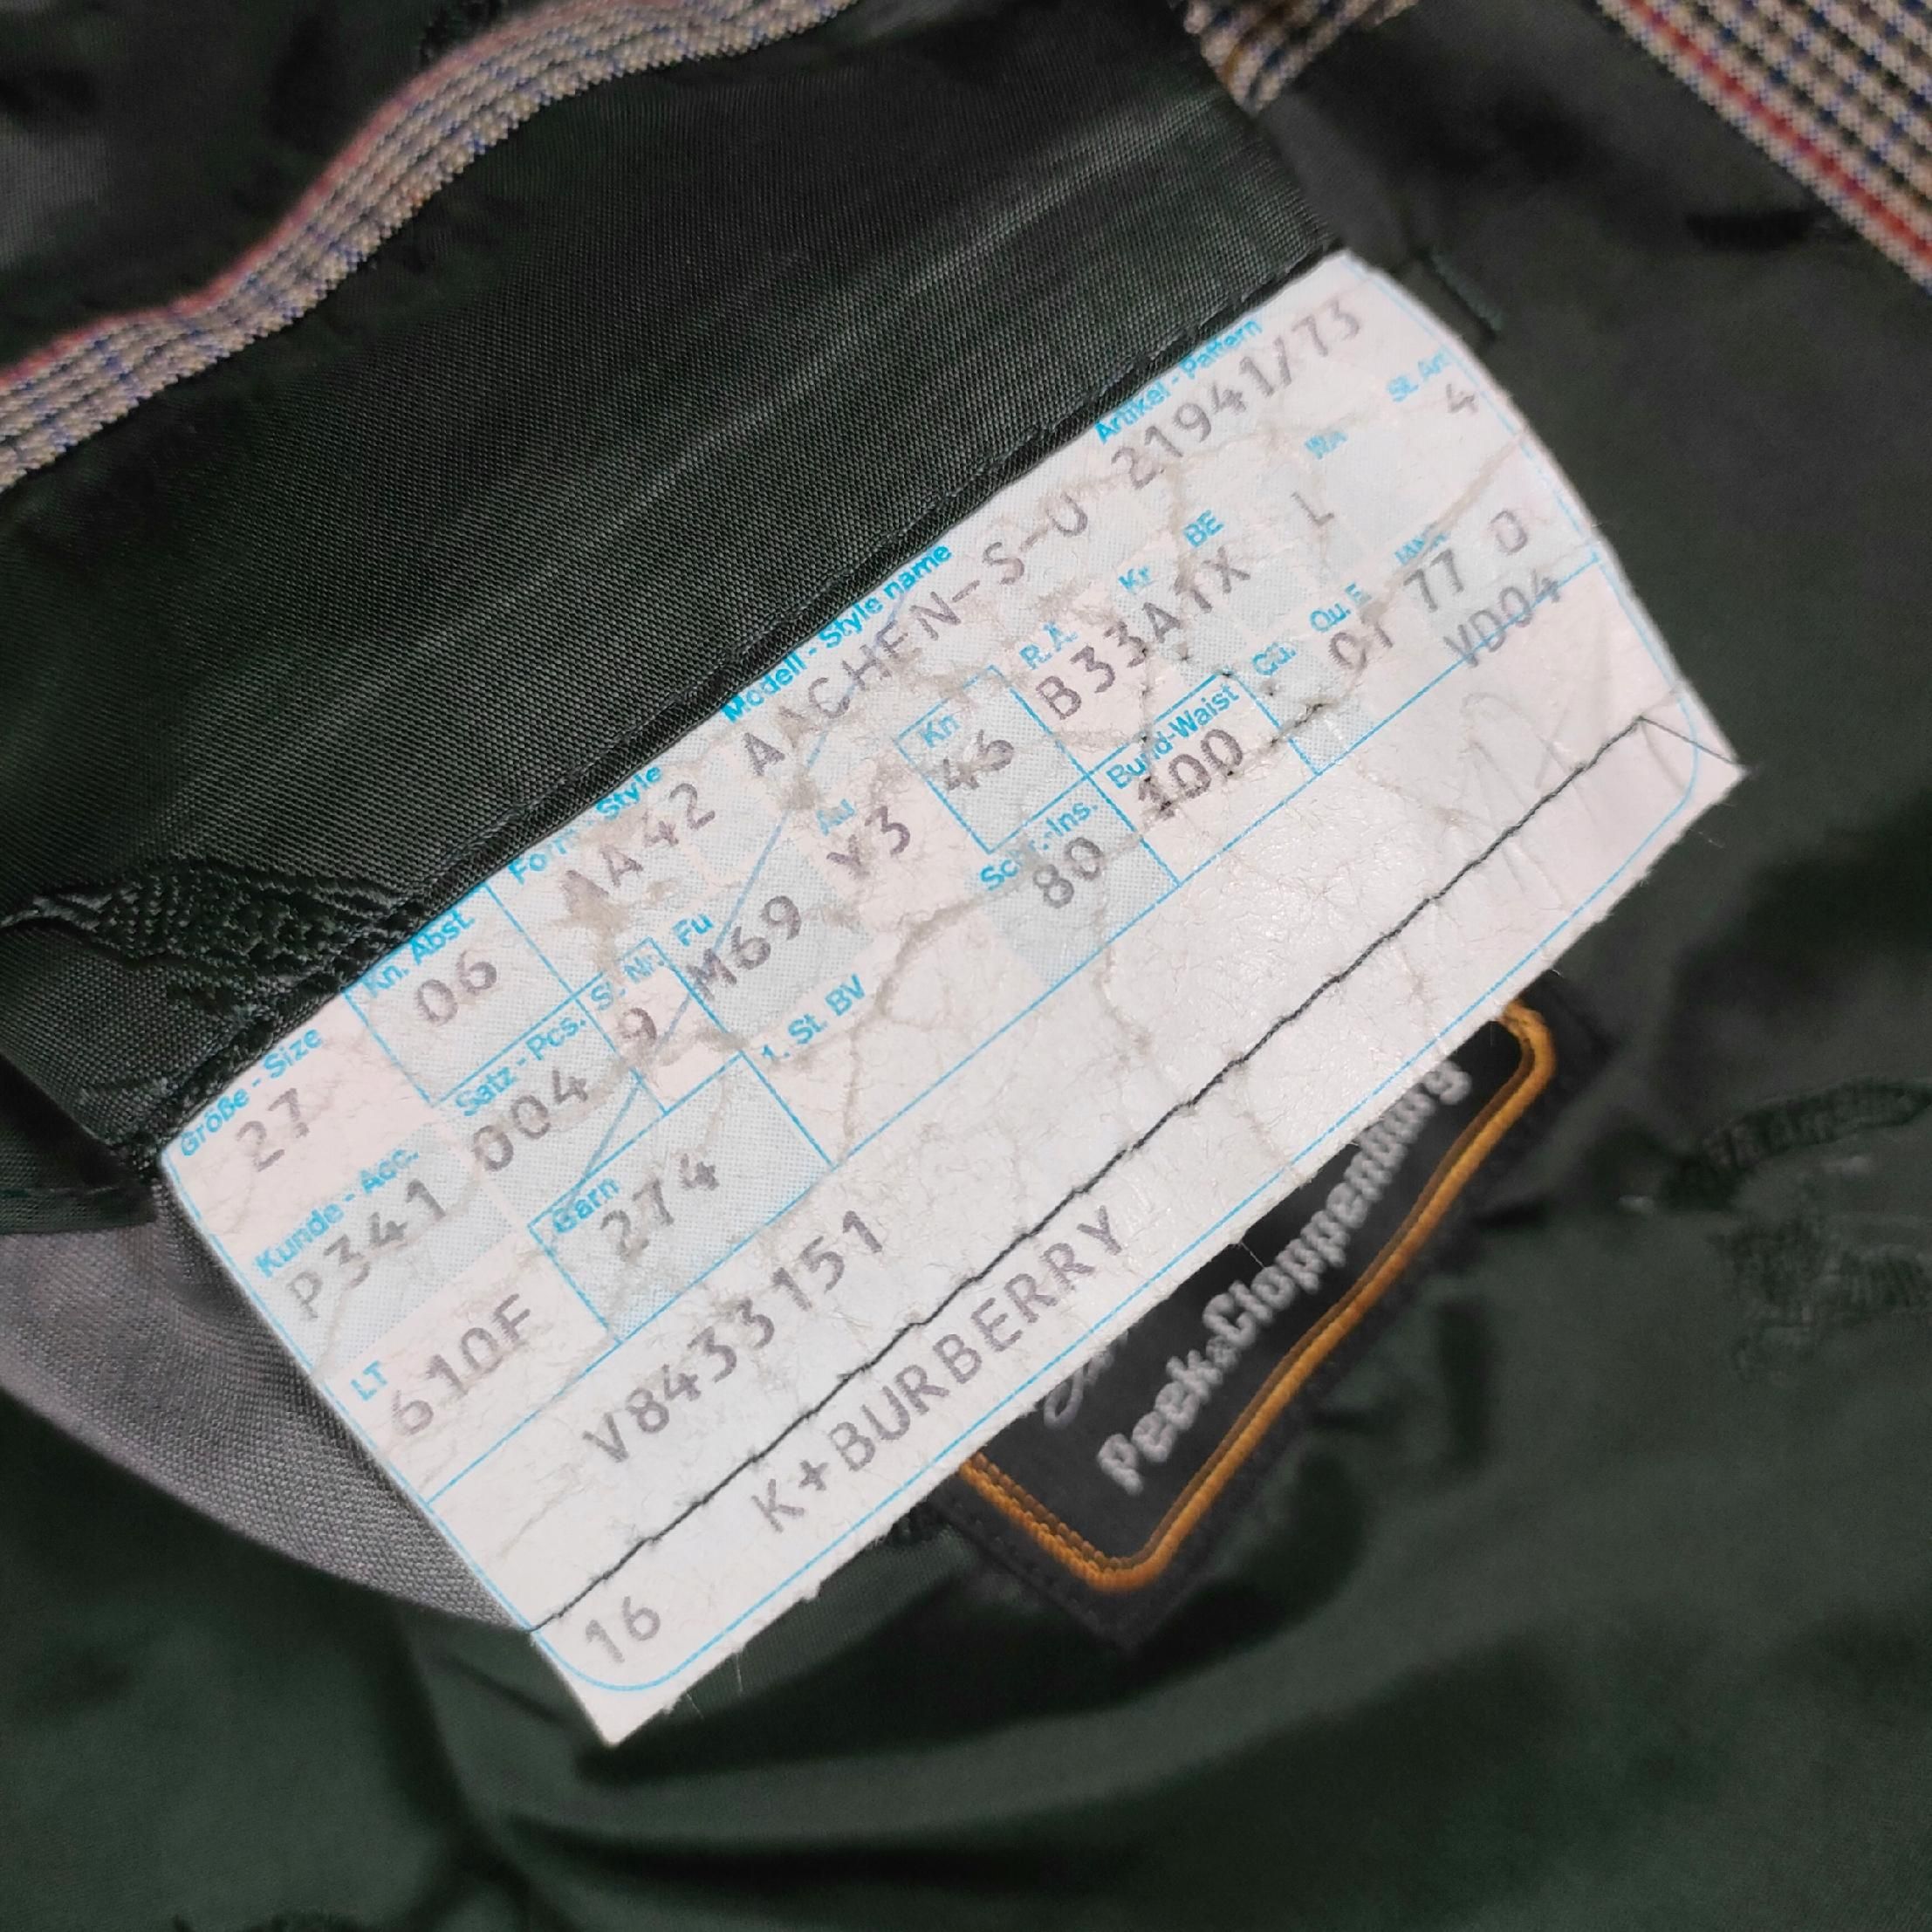 Größe - Size Kn. Abst Form - Style Modell - Style name Artikel - Pattern
27 06 AA42 AACHEN-S-U 21941/73
Kunde - Acc. Satz - Pcs. St. Nr. Fu Au Kn R.A. Kr BE WA St. Art
P341 004 9 M69 Y3 46 B33A1X L 4
LT Garn 1. St. BV Schr.-Ins. Bund-Waist Gü. Qu. E
610F 274 80 100 01 77 0
V8433151 VD04
16 K+BURBERRY
Peek&Cloppenburg